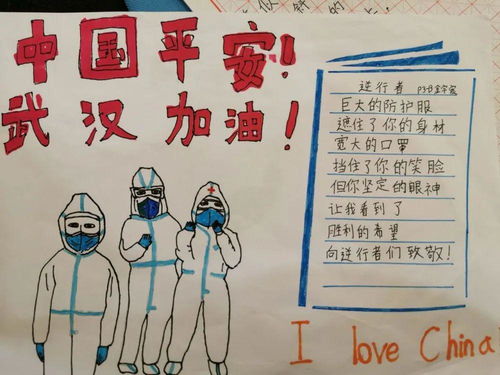 中国平安!
武汉加油!
逆行者
巨大的防护服
遮住了你的身材
宽大的口罩
挡住了你的笑脸
但你坚定的眼神
让我看到了
胜利的希望
向逆行者们致敬!
I love China